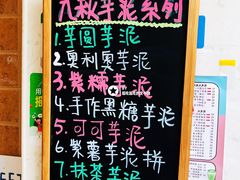 八秋芋泥系列
1.芋圆芋泥
2.奥利奥芋泥
3.紫糯芋泥
4.手作黑糖芋泥
5.可可芋泥
6.紫薯芋泥拼
7.抹茶芋泥